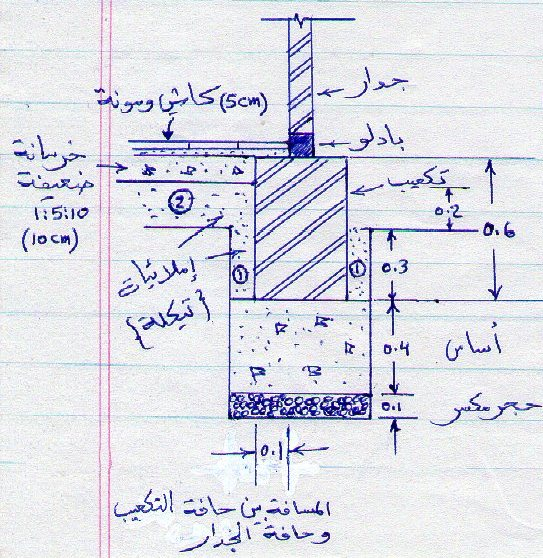 جدار
كاشي ومونة (5cm)
بادلو
خرسانة
ضعيفة
1:5:10
(10cm)
تكعيب
②
0.2
0.6
①
①
0.3
إملائيات
{تيكلة}
0.4
أساس
0.1
حجر مكسر
0.1
المسافة بين حافة التكعيب
وحافة الجدار